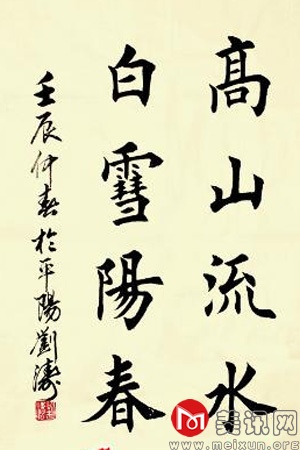 髙山流水
白雪陽春
壬辰仲春於平陽劉濤
美讯网
www.meixun.org